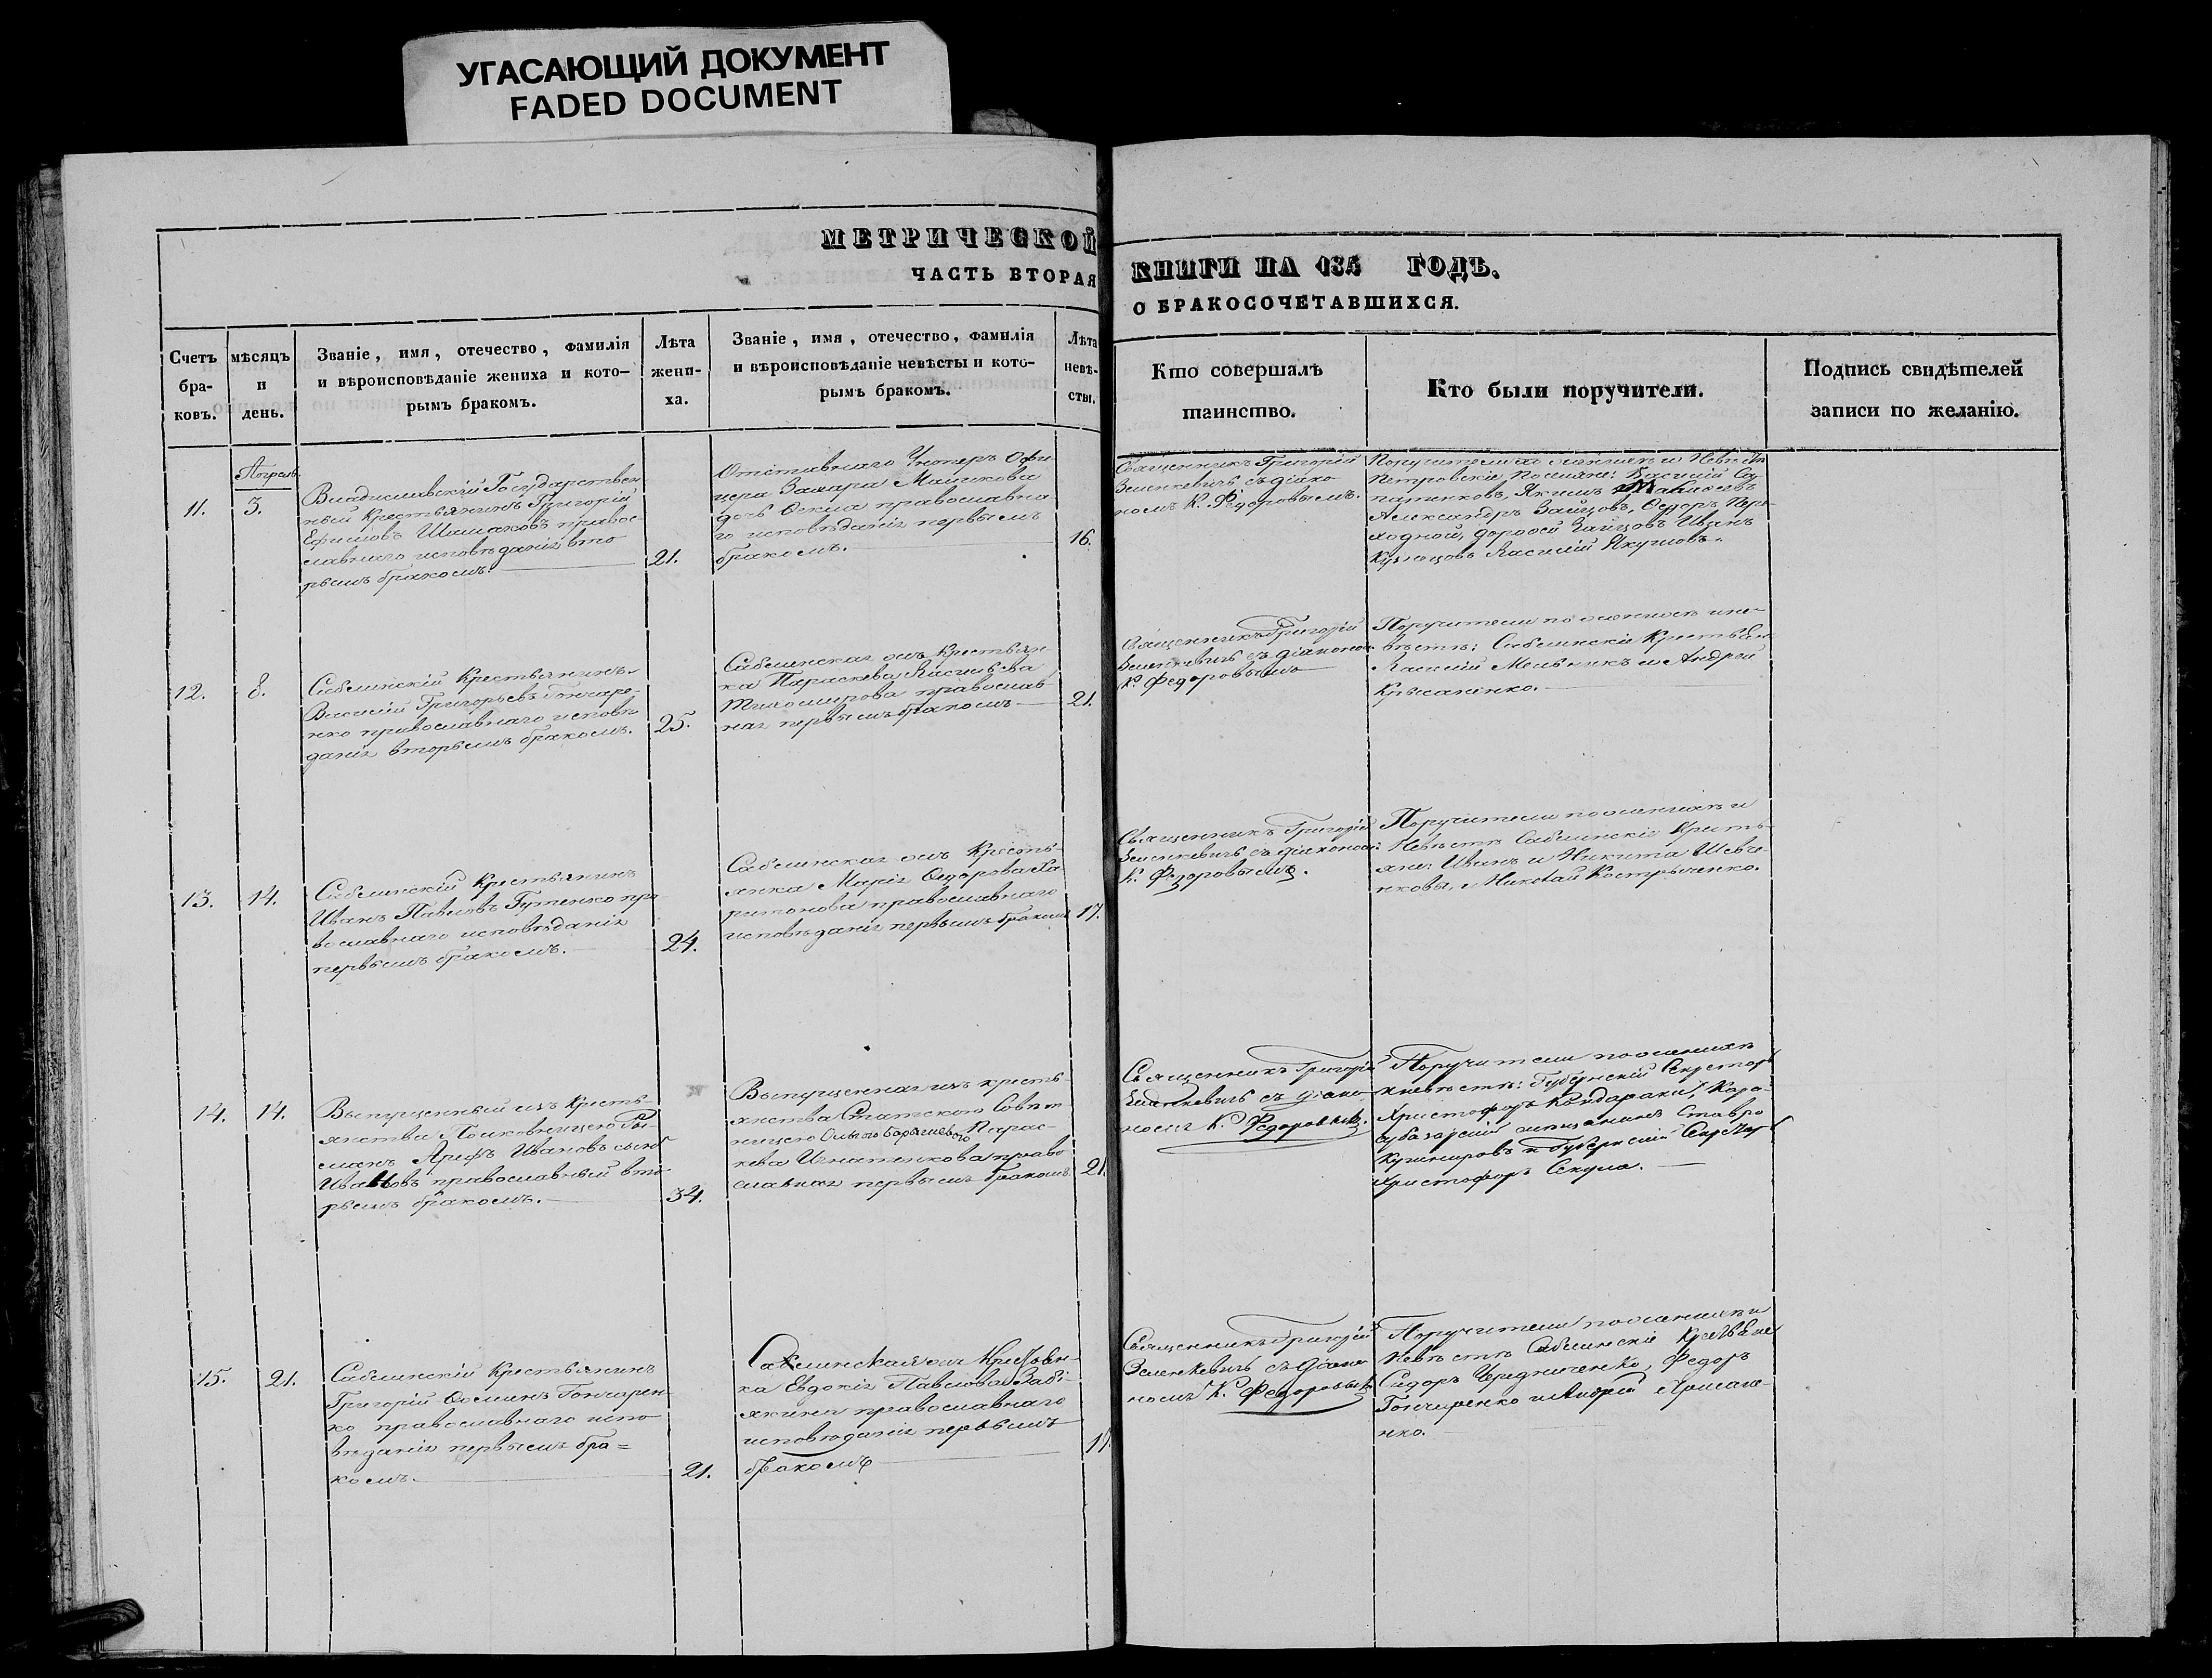 УГАСАЮЩИЙ ДОКУМЕНТ
FADED DOCUMENT
МЕТРИЧЕСКОЙ
ЧАСТЬ ВТОРАЯ
КНИГИ НА 185 ГОДЪ.
О БРАКОСОЧЕТАВШИХСЯ.
Счетъ бра-ковъ.
мѣсяцъ и день.
Званіе, имя, отечество, фамилія
и вѣроисповѣданіе жениха и кото-
рымъ бракомъ.
Лѣта жени-ха.
Званіе, имя, отечество, фамилія
и вѣроисповѣданіе невѣсты и кото-
рымъ бракомъ.
Лѣта невѣ-сты.
Кто совершалъ
таинство.
Кто были поручители.
Подпись свидѣтелей
записи по желанію.
Апрель
11.
3.
Владиславскій Государствен
ный Крестьянинъ Григорій
Ефимовъ Шишаковъ правос-
лавнаго исповѣданія вто
рымъ бракомъ.
21.
Отставнаго Унтеръ Офи
цера Захара
дочь православна
го исповѣданія первымъ
бракомъ.
16.
Священникъ Григорій
Зеленкевичь съ діако
номъ К. Федоровымъ.
Петровскіе Поселяне: Василій
Якимъ
Александръ Зайцовъ, Федоръ Пере
ходной, Дорофей Зайцовъ Иванъ
Кузнецовъ Василій Якушовъ.
12.
8.
Саблинскій Крестьянинъ
Василій Григорьевъ Гончаре-
нко православнаго исповѣ
данія вторымъ бракомъ.
25.
Саблинская Крестьян
ка Параскева Василіева
Тихомирова православ
ная первымъ бракомъ
21.
Священникъ Григорій
Зеленкевичь съ діаконом
К. Федоровымъ
Поручители по женихѣ и не-
вѣстѣ: Саблинскіе Крестьян
Василій Мельникъ и Андрей
13.
14.
Саблинскій Крестьянинъ
Иванъ Павловъ Гутенко пра
вославнаго исповѣданія
первымъ бракомъ.
24.
Саблинская Кресть-
янка Марія Федорова Ха
ритонова православнаго
исповѣданія первымъ бракомъ
17.
Священникъ Григорій
Зеленкевичь съ діаконом
К. Федоровымъ.
Поручители по женихѣ и
Невѣстѣ Саблинскіе Кресть-
яне: Иванъ и Никита Шевче-
нковы, и Николай Костриченко.
14.
14.
Выпущенный изъ Кресть-
янства Полковницею
Арефъ Ивановъ сынъ
Ивановъ православный вто-
рымъ бракомъ.
34.
Выпущенная изъ кресть-
янства Статскою Совѣт
ницею Ольгою Парас-
кева Игнатенкова право
славная первымъ бракомъ.
21.
Священникъ Григорій
Зеленкевичь съ діако
номъ К. Федоровымъ.
Поручители по женихѣ
и невѣстѣ: Губернскій Секретарь
Христофоръ Кондараки, Кара-
субазарскій мещанинъ Ставро
и Губернскій Секретарь
Христофоръ Секула.
15.
21.
Саблинскій Крестьянинъ
Григорій Фоминъ Гончарен-
ко православнаго испо
вѣданія первымъ бра=
комъ.
21.
Саблинская Крестьян-
ка Евдокія Павлова
православнаго
исповѣданія первымъ
бракомъ
Священникъ Григорій
Зеленкевичь съ діако
номъ К. Федоровымъ
Поручители по женихѣ и
невѣстѣ Саблинскіе Крестьяне
Сидоръ Чередниченко, Федоръ
Гончаренко и Андрей
нко.